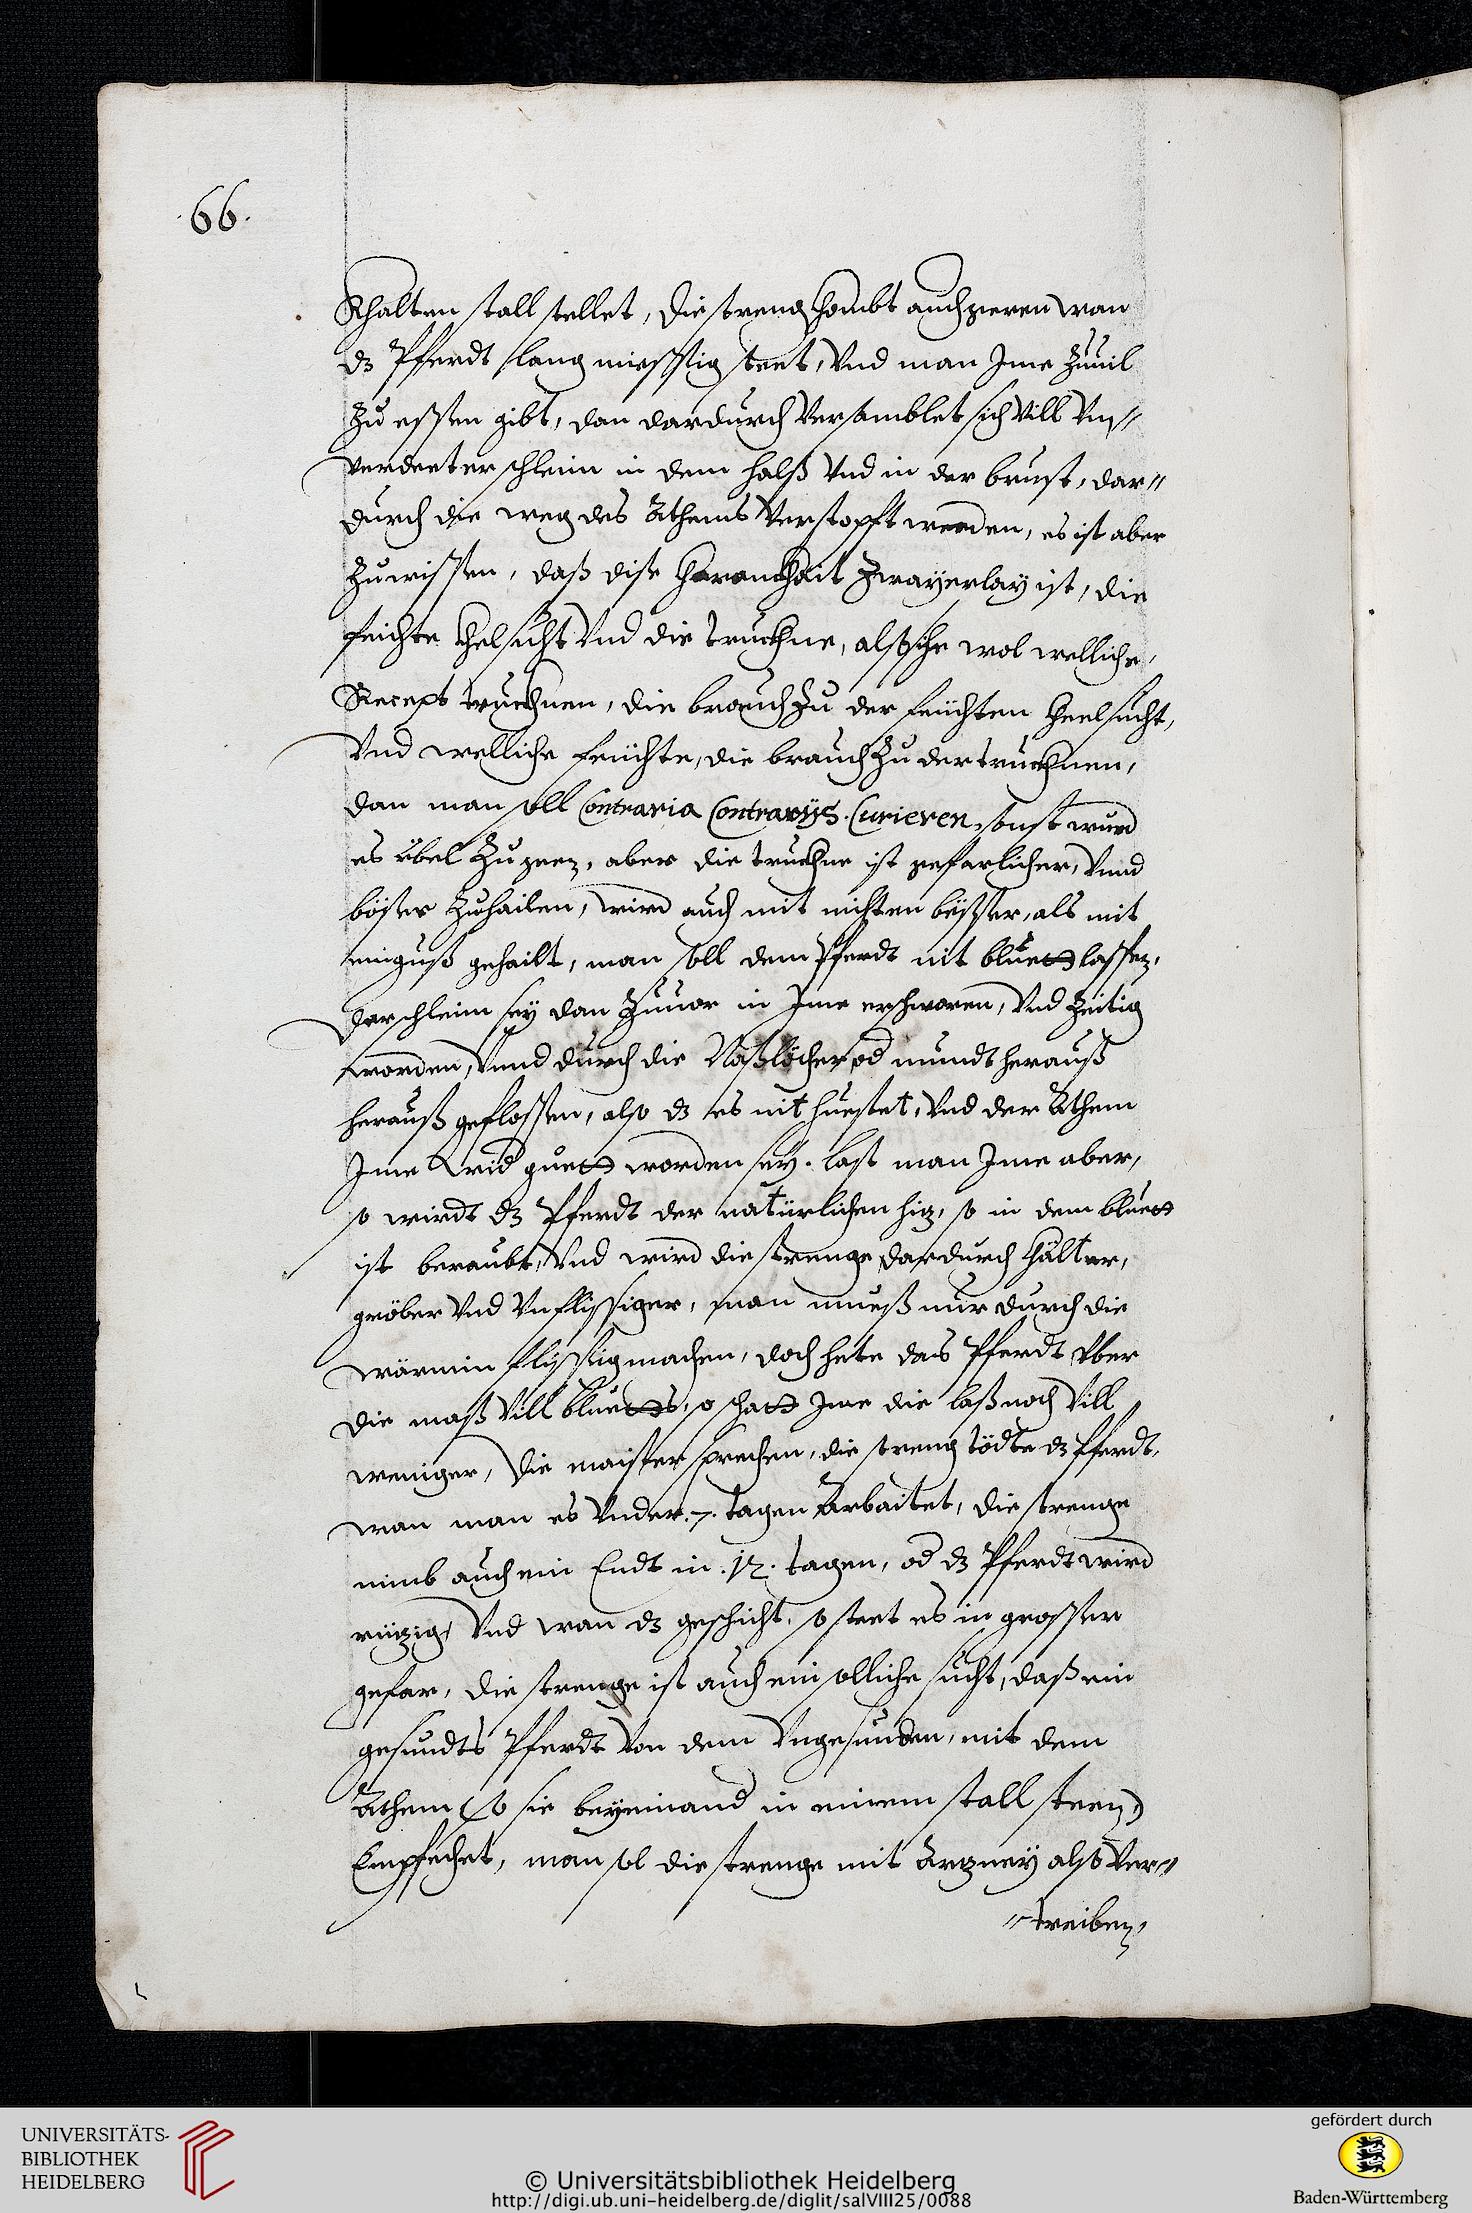 .66.
Khalten stall stellet, die streng khombt auch zeren wan
dz Pferdt lang miessig steet, Vnd man Ime Zuuil
Zu essen gibt, dan dardurch Versamblet sich Vill Vn„
verdeeter schleim in dem halß Vnd in der brust, dar„
durch die weg des Athems Verstopfft werden, es ist aber
Zuwissen, daß dise khrankhait Zwayerlay ist, die
feichte Khelsucht Vnd die truckhne, also siche wol welliche
Recept truckhnen, die brauch Zu der feüchten Kheelsucht,
Vnd welliche feüchte, die brauch Zu der truckhnen,
dan man soll Contraria Contrarijs. Curieren, sonst wurd
es übel Zu geen, aber die truckhne ist gefarlicher, Vnnd
böser Zuhailen, wird auch mit nichten besser, als mit
einguß gehailt, man soll dem Pferdt nit bluett lassen,
der schleim sey dan Zuuor in Ime erschworen, Vnd Zeitig
worden, Vnnd durch die Naßlöcher od mundt herauß
herauß geflossen, also dz es nit huestet, Vnd der Athem
Ime wid guett worden sey. last man Ime aber,
so wirdt dz Pferdt der natürlichen hiz, so in dem bluett
ist beraubt, Vnd wird die strenge dardurch khälter,
gröber Vnd Vnflissiger, man mueß nur durch die
wärmin flissig machen, doch hete das Pferdt Vber
die maß Vill bluetts, so schatt Ime die laß noch Vill
weniger, die maister sprechen, die streng tödte dz Pferdt,
wan man es Vnder .7. tagen Arbaitet, die strenge
nimb auch ein Endt in .12. tagen, od dz Pferdt wird
rüzig, Vnd wan dz geschicht, so steet es in grosser
gefar, die strenge ist auch ein solliche sucht, daß ein
gesundts Pferdt Von dem Vngesunden, mit dem
Athem (so sie beyeinand in einem stall steen)
Empfechet, man sol die strenge mit Arzney also Ver„
„treiben,
UNIVERSITÄTS-
BIBLIOTHEK
HEIDELBERG
© Universitätsbibliothek Heidelberg
http://digi.ub.uni-heidelberg.de/diglit/salVIII25/0088
gefördert durch
Baden-Württemberg